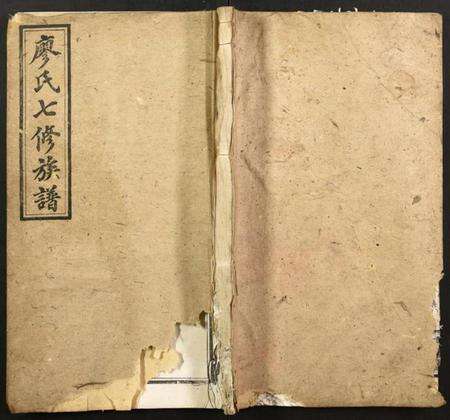 廖氏七修族譜